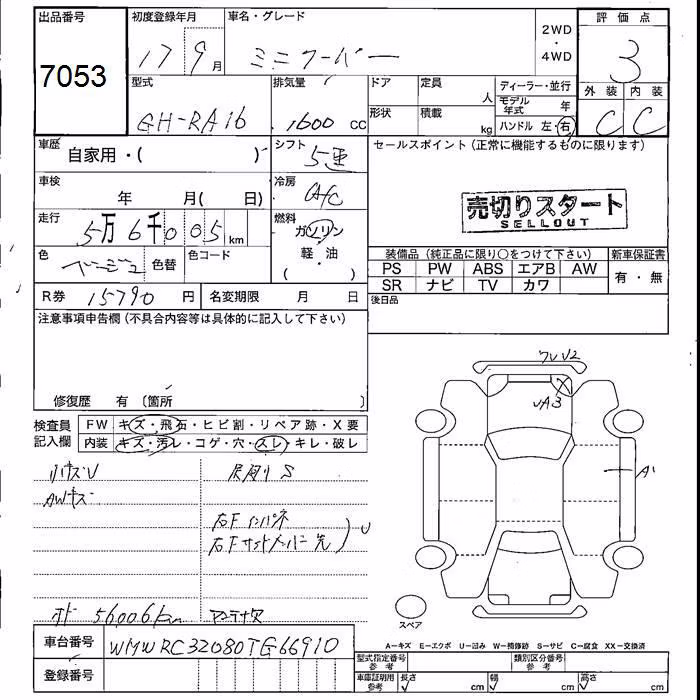 出品番号 初度登録年月 車名・グレード 2WD・4WD 評価点
7053 17 9月 ミニクーパー 3
型式 排気量 ドア 定員 人 ディーラー・並行 外装 内装
GH-RA16 1600 cc 形状 積載 kg モデル年式 年 C C
ハンドル 左・右
車歴 自家用・( ) シフト 5速 セールスポイント (正常に機能するものに限ります)
車検 年 月( 日) 冷房 A/C
売切りスタート
SELLOUT
走行 5万6千005km 燃料 ガソリン
軽・油
( )
色 ベージュ 色替 色コード
装備品 (純正品に限り〇をつけて下さい) 新車保証書
PS PW ABS エアB AW 有・無
SR ナビ TV カワ
R券 15790円 名変期限 月 日 後日品
注意事項申告欄 (不具合内容等は具体的に記入して下さい)
修復歴 有 〔箇所 〕
検査員記入欄 FW キズ・飛石・ヒビ割・リペア跡・X要
内装 キズ・汚レ・コゲ・穴・スレ・キレ・破レ
小キズU
AWキズ
右Fインパネ
56006km
車台番号 WMWRC32080TG66910
登録番号
A1
スペア
A=キズ E=エクボ U=凹み W=補修跡 S=サビ C=腐食 XX=交換済
型式指定番号 参考 類別区分番号 参考
車庫証明用 参考 長さ cm 幅 cm 高さ cm